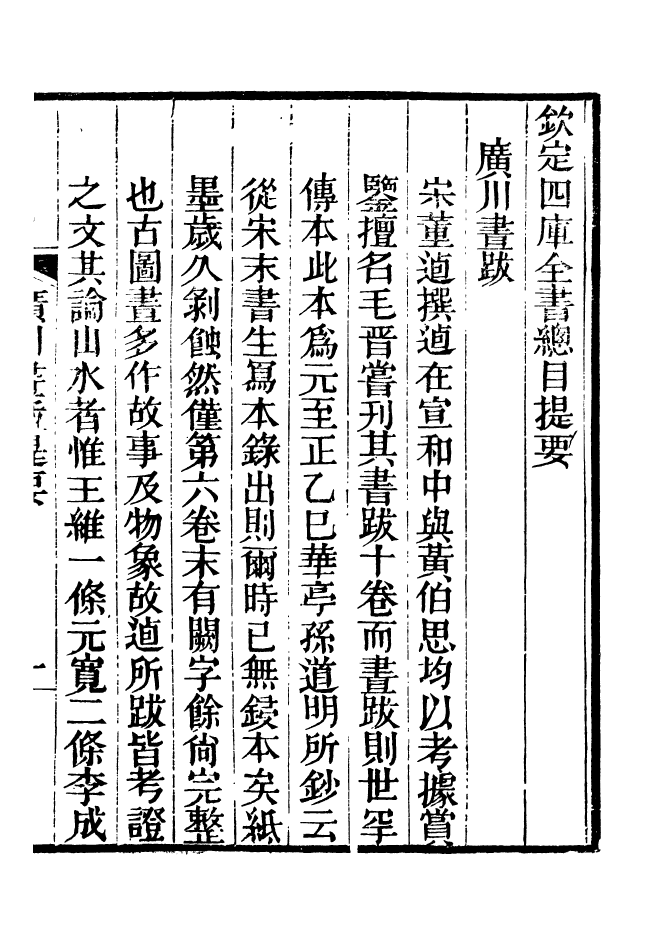 欽定四庫全書總目提要
廣川畫跋
宋董逌撰逌在宣和中與黃伯思均以考據賞
鑒擅名毛晉嘗刊其書跋十卷而畫跋則世罕
傳本此本為元至正乙巳華亭孫道明所鈔云
從宋末書生寫本錄出則爾時已無鋟本矣紙
墨歲久剝蝕然僅第六卷末有闕字餘尙完整
也古圖畫多作故事及物象故逌所跋皆考證
之文其論山水者惟王維一條元寬二條李成
廣川畫跋提要 一